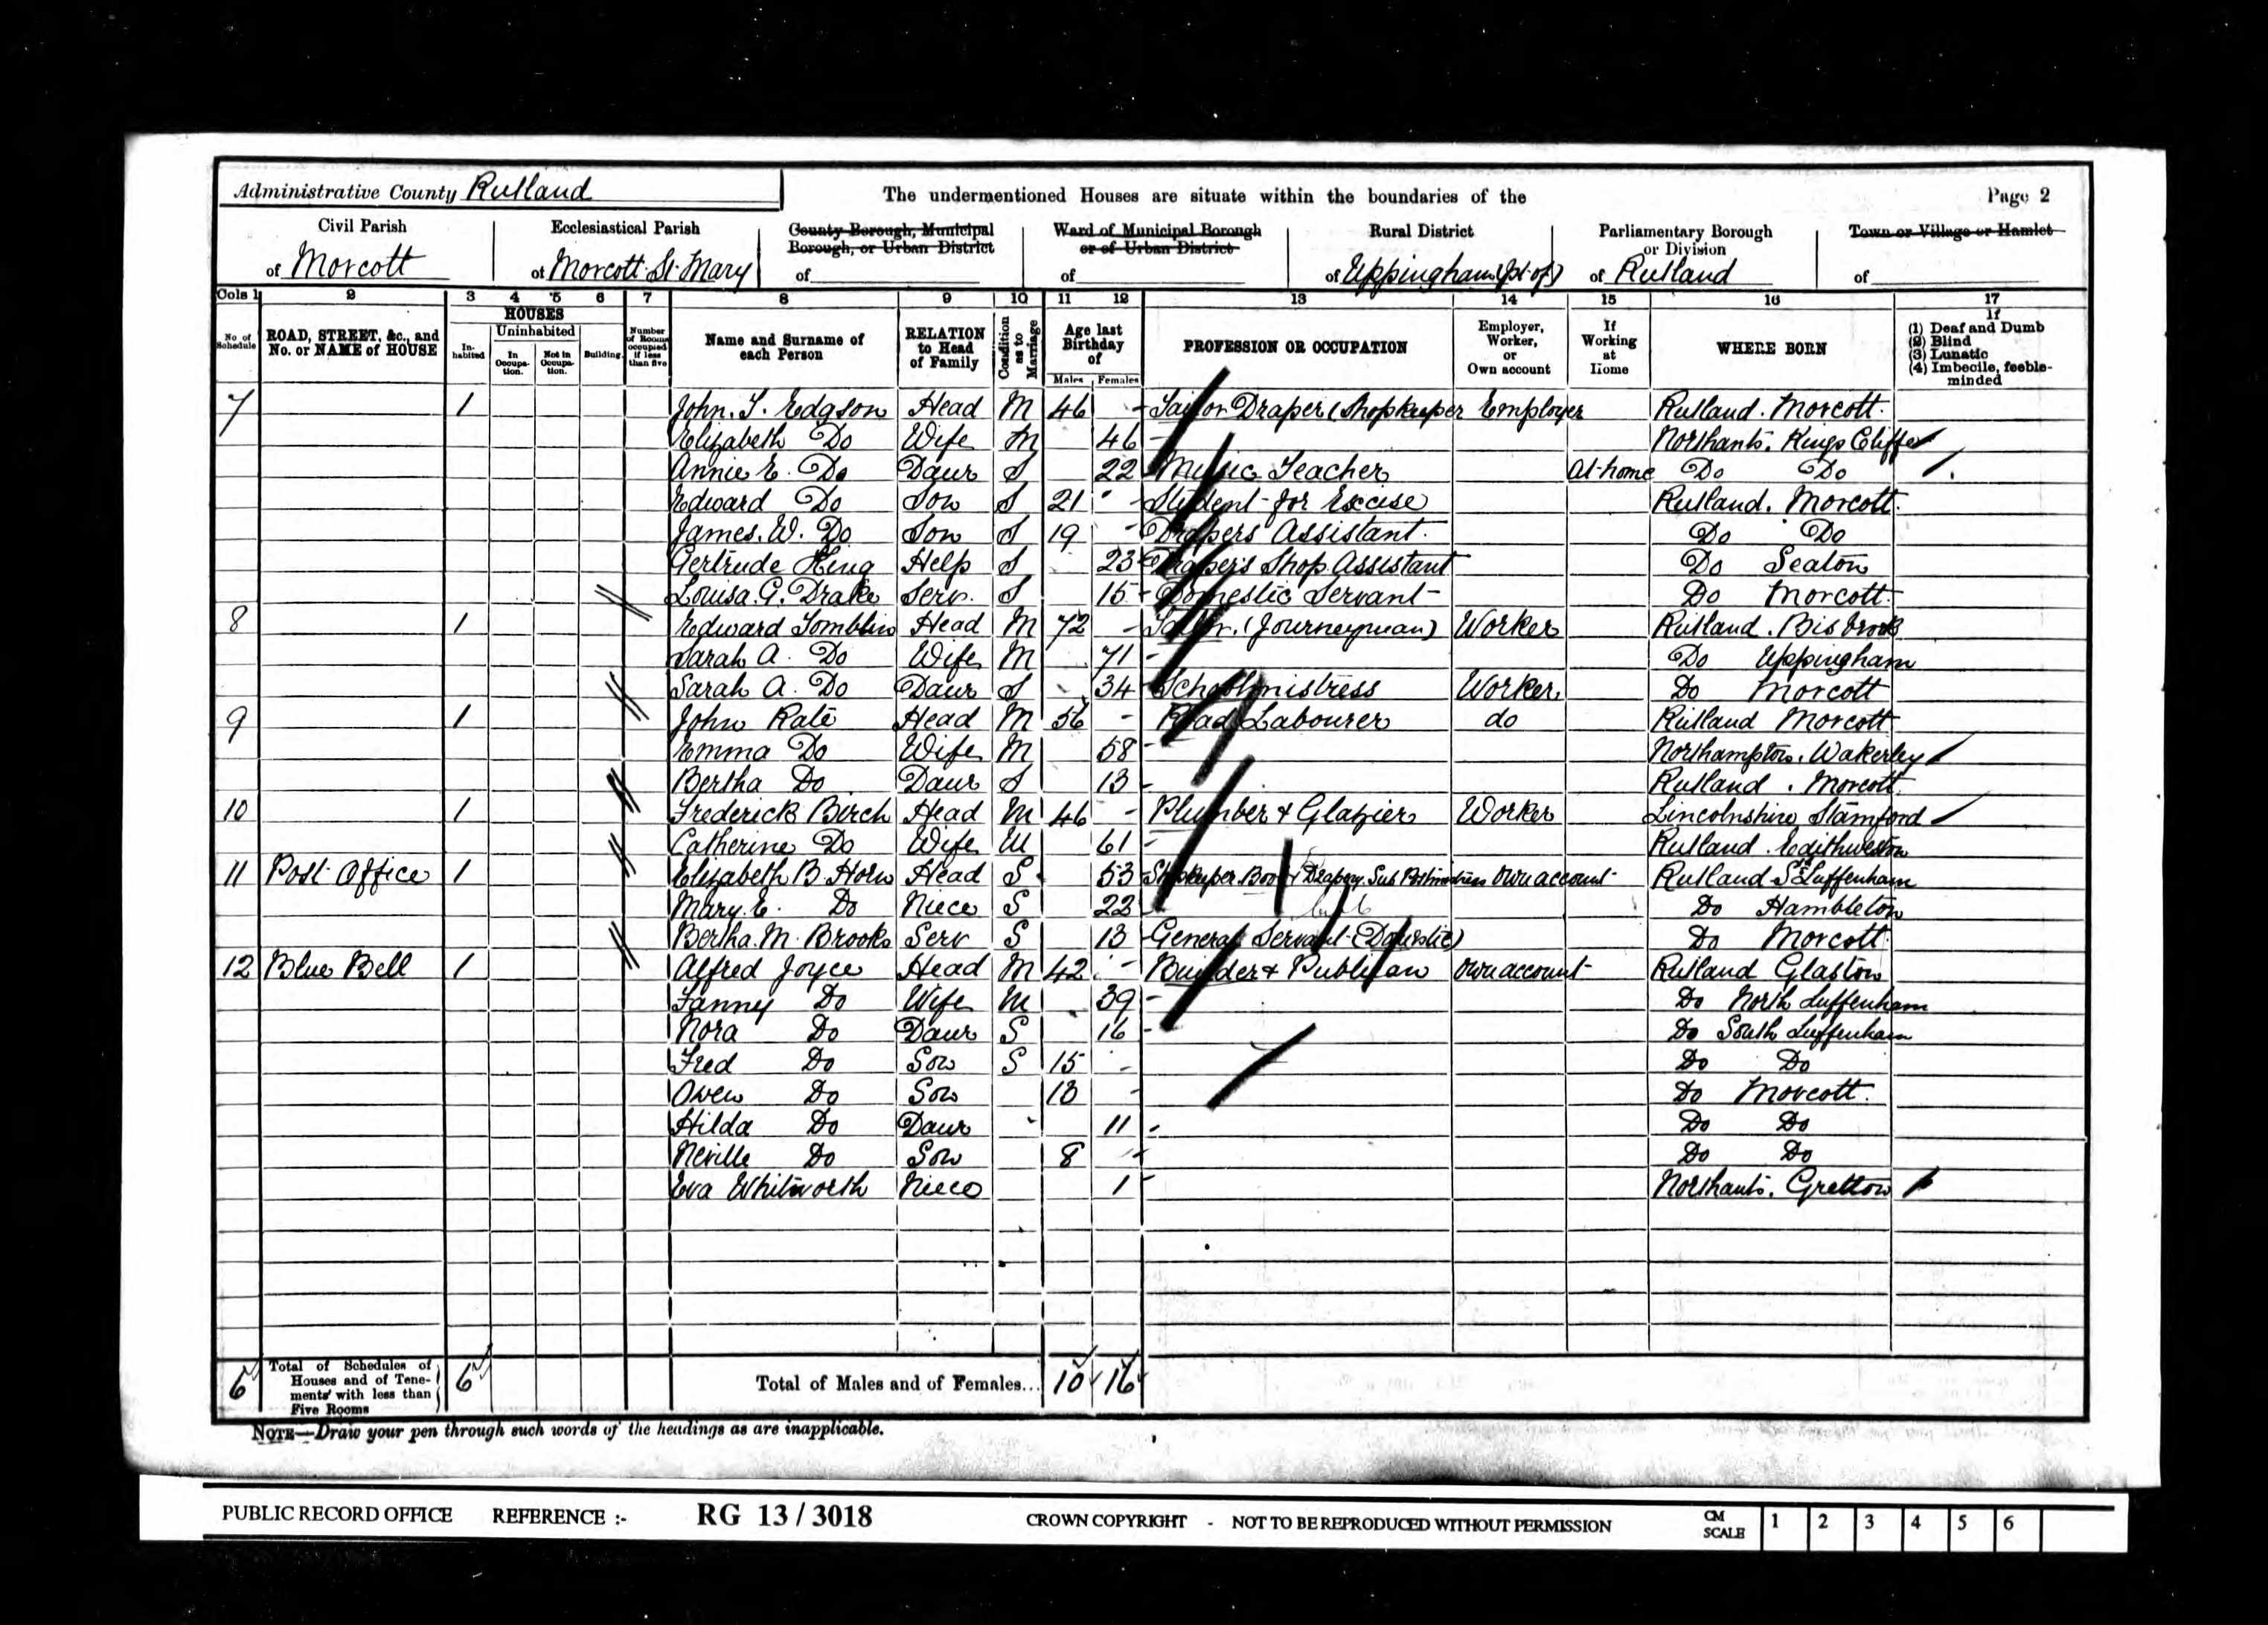 Administrative County Rutland The undermentioned Houses are situate within the boundaries of the Page 2
Civil Parish of Morcott
Ecclesiastical Parish of Morcott St. Mary
County Borough, Municipal Borough, or Urban District of
Ward of Municipal Borough or of Urban District of
Rural District of Uppingham (pt of)
Parliamentary Borough or Division of Rutland
Town or Village or Hamlet of
Cols 1 2 3 4 5 6 7 8 9 10 11 12 13 14 15 16 17
No of Schedule
ROAD, STREET, &c., and No. or NAME of HOUSE
HOUSES
In-habited
Uninhabited
In Occupa-tion.
Not in Occupa-tion.
Building.
Number of Rooms occupied if less than five
Name and Surname of each Person
RELATION to Head of Family
Condition as to Marriage
Age last Birthday of
Males Females
PROFESSION OR OCCUPATION
Employer, Worker, or Own account
If Working at Home
WHERE BORN
If (1) Deaf and Dumb (2) Blind (3) Lunatic (4) Imbecile, feeble-minded
7 1 John. T. Edgson Head M 46 - Tailor Draper (Shopkeeper Employer Rutland. Morcott.
Elizabeth Do Wife M 46 - Northants. Kings Cliffe
Annie E. Do Daur S 22 Music Teacher At home Do Do
Edward Do Son S 21 - Student for Excise Rutland. Morcott.
James. W. Do Son S 19 - Drapers Assistant. Do Do
Gertrude King Help S 23 Drapers Shop Assistant Do Seaton
Louisa. G. Drake Serv. S 15 - Domestic Servant Do Morcott.
8 1 Edward Tomblin Head M 72 - Tailor. (Journeyman) Worker Rutland. Bisbrook
Sarah A. Do Wife M 71 - Do Uppingham
Sarah A. Do Daur S 34 - Schoolmistress Worker. Do Morcott
9 1 John Rate Head M 56 - Road Labourer do Rutland Morcott
Emma Do Wife M 58 - Northampton. Wakerley
Bertha Do Daur S 13 - Rutland. Morcott.
10 1 Frederick Birch Head M 46 - Plumber + Glazier Worker Lincolnshire Stamford
Catherine Do Wife M 61 - Rutland. Edithweston
11 Post Office 1 Elizabeth B. Horn Head S 53 Shopkeeper. Boot + Drapery. Sub Postmistress own account Rutland S. Luffenham
Mary. E. Do Niece S 22 Do Hambleton
Bertha. M. Brooks Serv S 13 - General Servant (Domestic) Do Morcott.
12 Blue Bell 1 Alfred Joyce Head M 42 - Builder + Publican own account Rutland Glaston
Fanny Do Wife M 39 - Do North Luffenham
Nora Do Daur S 16 - Do South Luffenham
Fred Do Son S 15 - Do Do
Owen Do Son 13 - Do Morcott.
Hilda Do Daur 11 - Do Do
Neville Do Son 8 - Do Do
Eva Whitworth Niece 1 - Northants. Gretton
6 Total of Schedules of Houses and of Tene-ments with less than Five Rooms 6 Total of Males and of Females... 10 16
NOTE—Draw your pen through such words of the headings as are inapplicable.
PUBLIC RECORD OFFICE REFERENCE :- RG 13 / 3018 CROWN COPYRIGHT - NOT TO BE REPRODUCED WITHOUT PERMISSION CM SCALE 1 2 3 4 5 6